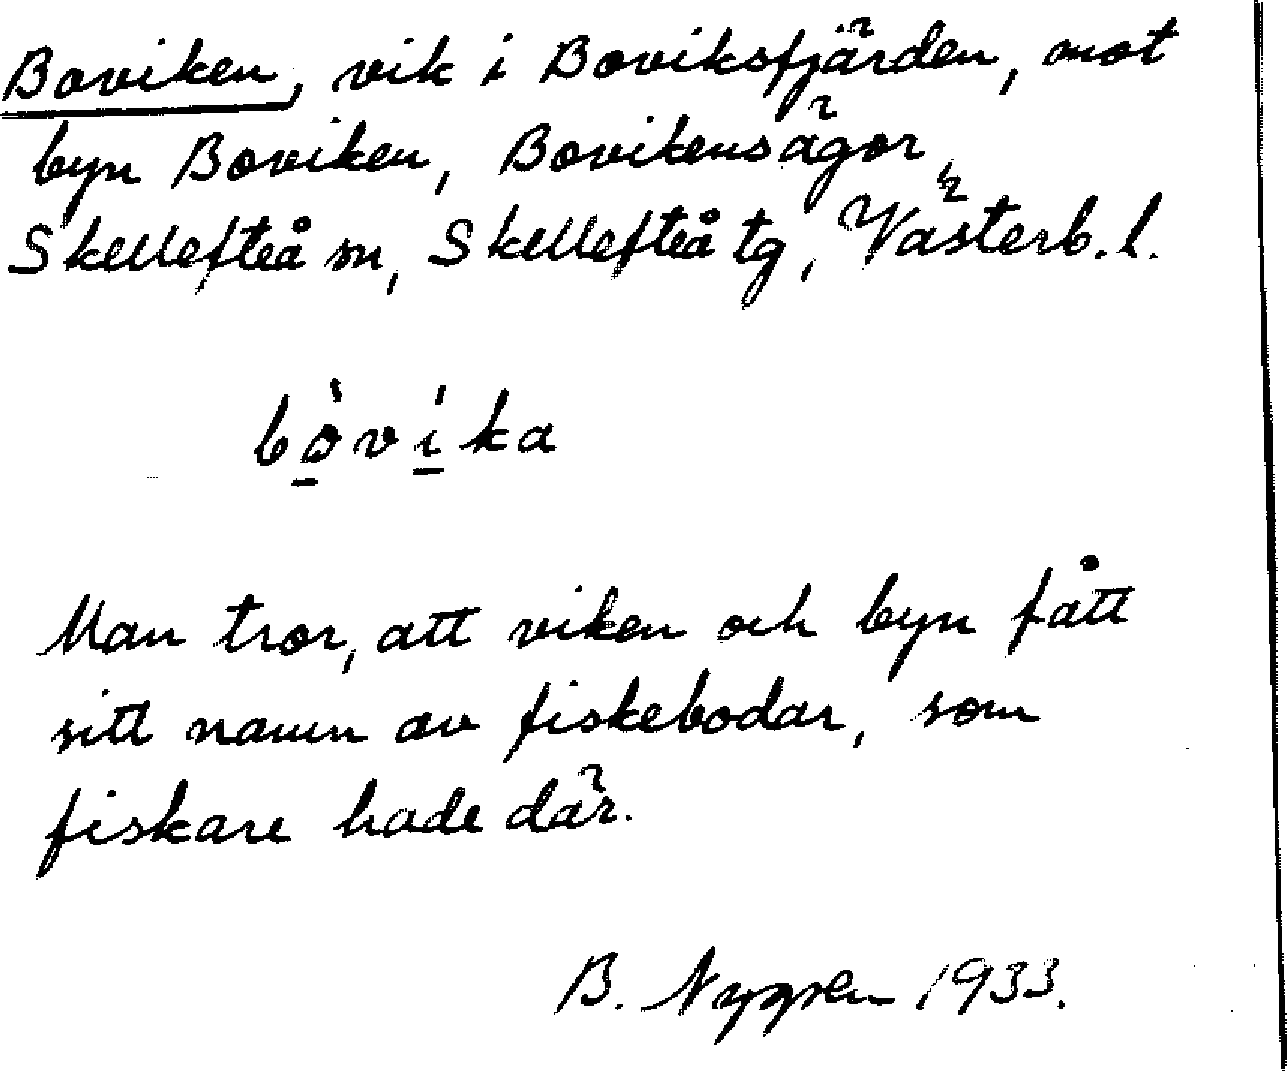 Boviken, vik i Boviksfjärden, mot
byn Boviken, Bovikensägor,
Skellefteå sn, Skellefteå tg, Västerb. l.
bo̠̍vi̠̍ka
Man tror, att viken och byn fått
sitt namn av fiskebodar, som
fiskare hade där.
B. Nygren 1933.